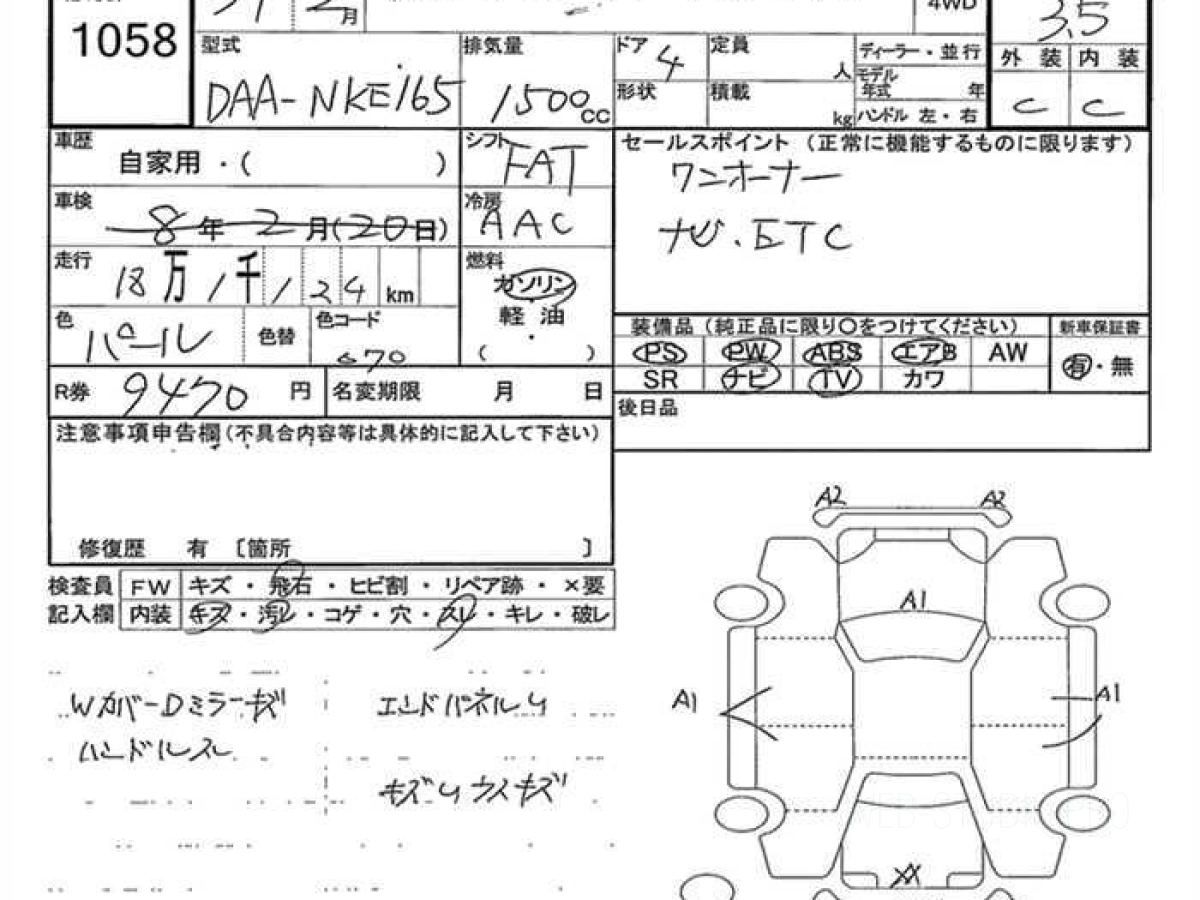 月
4WD
1058
3.5
型式
排気量
ドア 4
定員
人
ディーラー・並行
外装 内装
DAA-NKE165
1500cc
形状
積載
kg
モデル年式 年
ハンドル 左・右
C C
車歴
自家用・( )
シフト
FAT
セールスポイント (正常に機能するものに限ります)
ワンオーナー
ナビ.ETC
車検
8年2月(20日)
冷房
AAC
走行
18万1千124km
燃料
ガソリン
軽・油
( )
色
パール
色替
色コード
070
装備品(純正品に限り〇をつけてください)
新車保証書
PS PW ABS エアB AW
有・無
SR ナビ TV カワ
R券 9470円
名変期限 月 日
後日品
注意事項申告欄(不具合内容等は具体的に記入して下さい)
修復歴 有 〔箇所 〕
検査員記入欄
FW キズ・飛石・ヒビ割・リペア跡・×要
内装 キズ・汚レ・コゲ・穴・スレ・キレ・破レ
Wカバー Dミラーキズ
エンドパネルU
ハンドルスレ
キズU ウスキズ
A2 A2
A1
A1 A1
XX